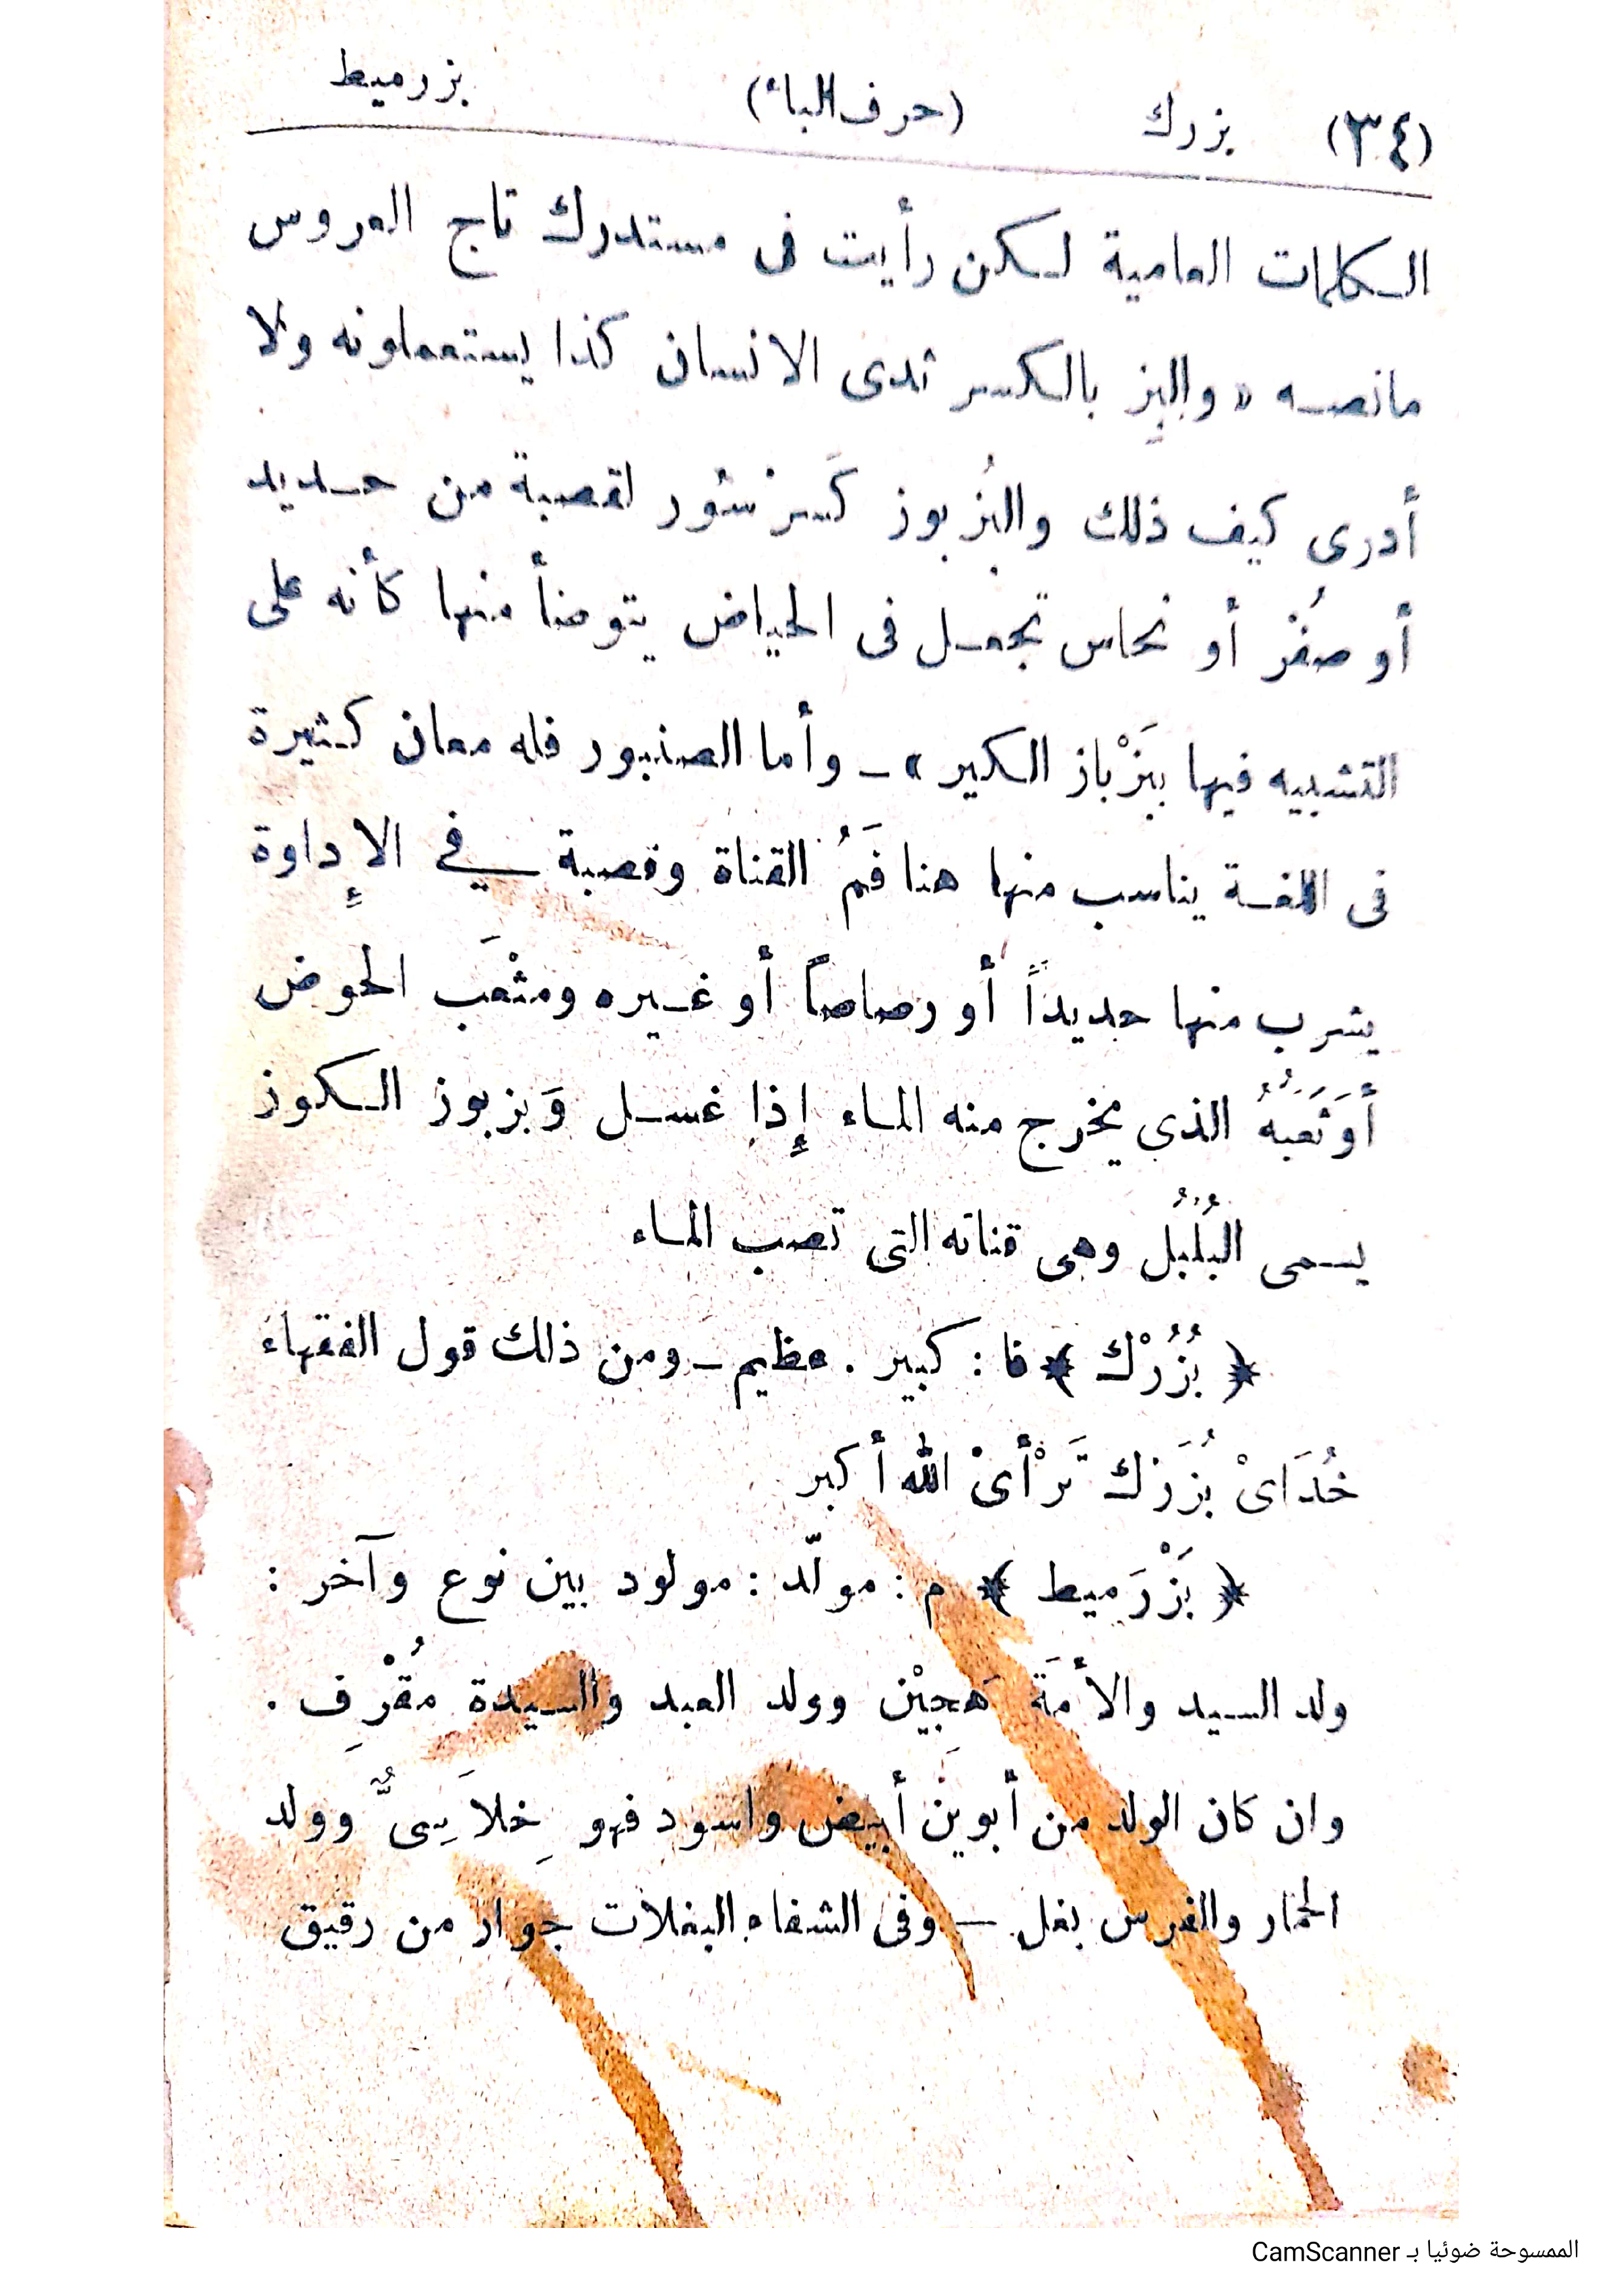 (٣٤) بزرك (حرف الباء) بزرميط
الكلمات العامية لكن رأيت فى مستدرك تاج العروس
مانصه « والبِز بالكسر ثدى الانسان كذا يستعملونه ولا
أدرى كيف ذلك والبُزبوز كَسرسور لقصبة من حديد
أو صُفْر أو نحاس تجعل فى الحياض يتوضأ منها كأنه على
التشبيه فيها ببَزْباز الكير » ـ وأما الصنبور فله معان كثيرة
فى اللغة يناسب منها هنا فَمُ القناة وقصبة في الإداوة
يشرب منها حديداً أو رصاصاً أو غيره ومثْعَب الحوض
أوَثَعَبَهُ الذى يخرج منه الماء إذا غسل وَبزبوز الكوز
يسمى البُلْبُل وهى قناته التى تصب الماء
﴿ بُزُرْك ﴾ فا : كبير . عظيم ـ ومن ذلك قول الفقهاء
خُدَاىْ بُزَرْك تَرْأىْ الله أكبر
﴿ بَزْرَميط ﴾ م : مولّد : مولود بين نوع وآخر :
ولد السيد والأمَة هَجِيْن وولد العبد والسيدة مُقْرِف .
وان كان الولد من أبوَين أبيض واسود فهو خِلاَسِىٌّ وولد
الحمار والفرس بغل . — وفى الشفاء البغلات جوار من رقيق
الممسوحة ضوئيا بـ CamScanner